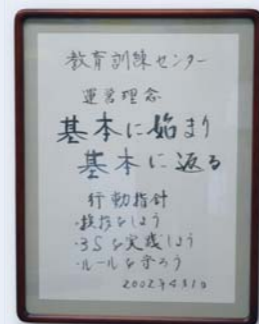 教育訓練センター
運営理念
基本に始まり
基本に返る
行動指針
・挨拶をしよう
・3Sを実践しよう
・ルールを守ろう
2002年4月1日